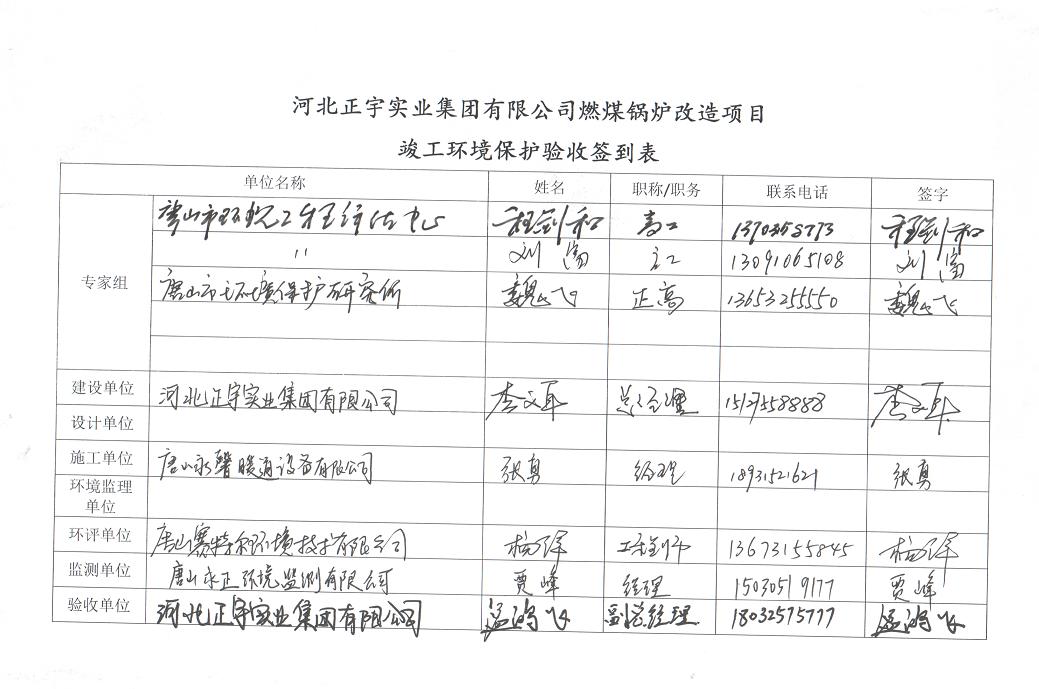 河北正宇实业集团有限公司燃煤锅炉改造项目
竣工环境保护验收签到表
单位名称 姓名 职称/职务 联系电话 签字
专家组
唐山市环境工程评估中心 程剑和 高工 程剑和
〃 刘富 高工 13091065108 刘富
唐山市环境保护研究所 魏飞 正高 13653255550 魏飞
建设单位 河北正宇实业集团有限公司 李文军 总经理 李文军
设计单位
施工单位 唐山永馨暖通设备有限公司 张勇 经理 18931521621 张勇
环境监理
单位
环评单位 唐山赛特尔环境技术有限公司 杨洋 工程师 13673155845 杨洋
监测单位 唐山永正环境监测有限公司 贾峰 经理 15030519177 贾峰
验收单位 河北正宇实业集团有限公司 孟鸿飞 副总经理 18032575777 孟鸿飞